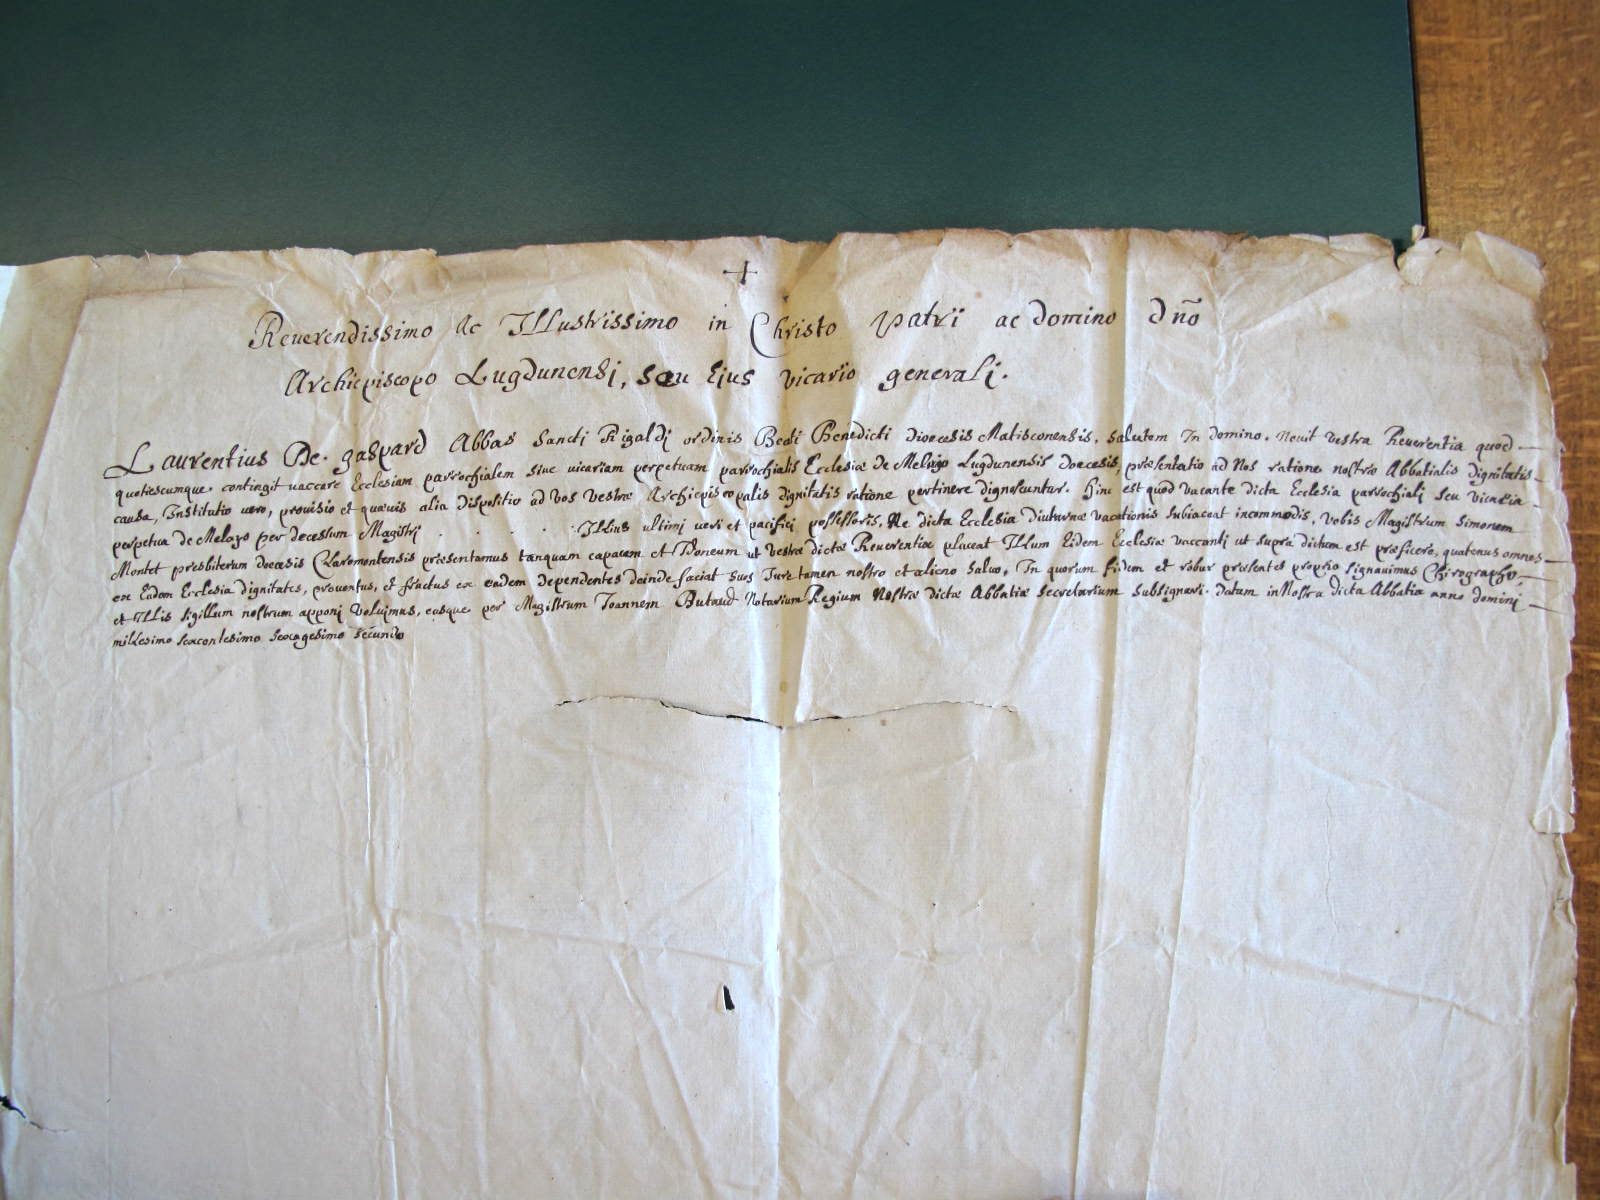 +
Reuerendissimo Ac Illustrissimo in Christo Patri ac domino Dño
Archiepiscopo Lugdunensi, seu Ejus vicario generali.
Laurentius De. gaspard Abbas Sancti Rigaldi ordinis Beati Benedicti Dioecesis Matisconensis. salutem In domino. Nouit vestra Reuerentia quod
quotiescumque contingit vaccare Ecclesiam parrochialem siue vicariam perpetuam parrochialis Ecclesiæ de Melayo Lugdunensis doecesis, præsentatio ad Nos ratione nostræ Abbatialis dignitatis
causa, Institutio vero, prouisio et quæuis alia dispositio ad vos vestræ Archiepiscopalis dignitatis ratione pertinere dignoscuntur. Hinc est quod vacante dicta Ecclesia parrochiali seu vicaria
perpetua de Melayo per decessum Magistri . . . . Illius ultimi veri et pacifici possessoris, Ne dicta Ecclesia diuturnæ vacationis subiaceat incommodis, vobis Magistrum Simonem
Montet presbiterum doecesis Claromontensis præsentamus tanquam capacem et Idoneum ut vestræ dictæ Reuerentiæ placeat Illum Eidem Ecclesiæ vaccanti ut supra dictum est præficere, quatenus omnes
ex Eadem Ecclesia dignitates, prouentus, et fructus ex eadem dependentes deinde faciat suos Iure tamen nostro et alieno saluo, In quorum fidem et robur præsentes proprio signauimus Chirographo,
et Illis sigillum nostrum apponi voluimus, easque per Magistrum Joannem Butaud Notarium Regium Nostræ dictæ Abbatiæ secretarium subsignari. datum in Nostra dicta Abbatia anno domini
millesimo sexcentesimo sexagesimo secundo